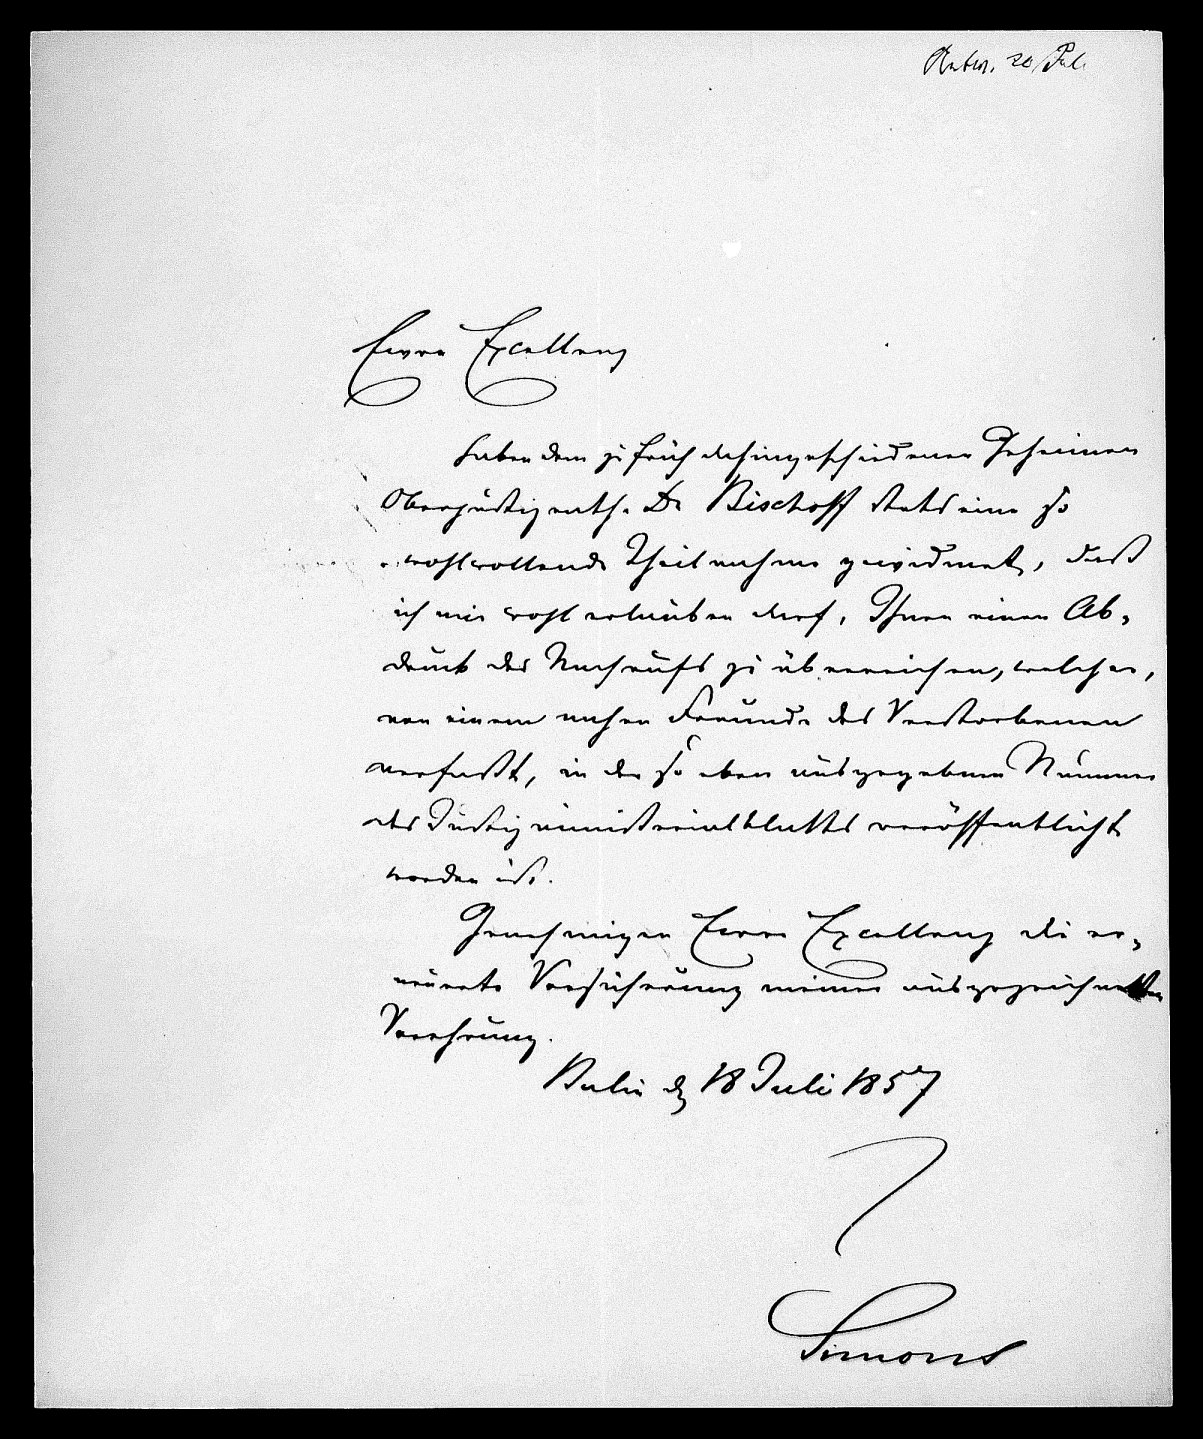 Antw. 20/Juli
Eurer Excellenz
haben dem zu früh dahingeschiedenen Geheimen
Oberjustizrath Dr Bischoff stets eine so
wohlwollende Theilnahme gewidmet, daß
ich mir wohl erlauben darf, Ihnen einen Ab-
druck des Nachrufs zu überreichen, welcher,
von einem nahen Freunde des Verstorbenen
verfaßt, in der so eben ausgegebenen Nummer
des Justizministerialblatts veröffentlicht
worden ist.
Genehmigen Eure Excellenz die er-
neuerte Versicherung meiner ausgezeichnetsten
Verehrung.
Berlin d 18 Juli 1857
Simons